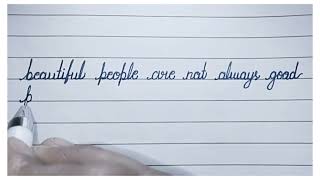 beautiful people are not always good
b